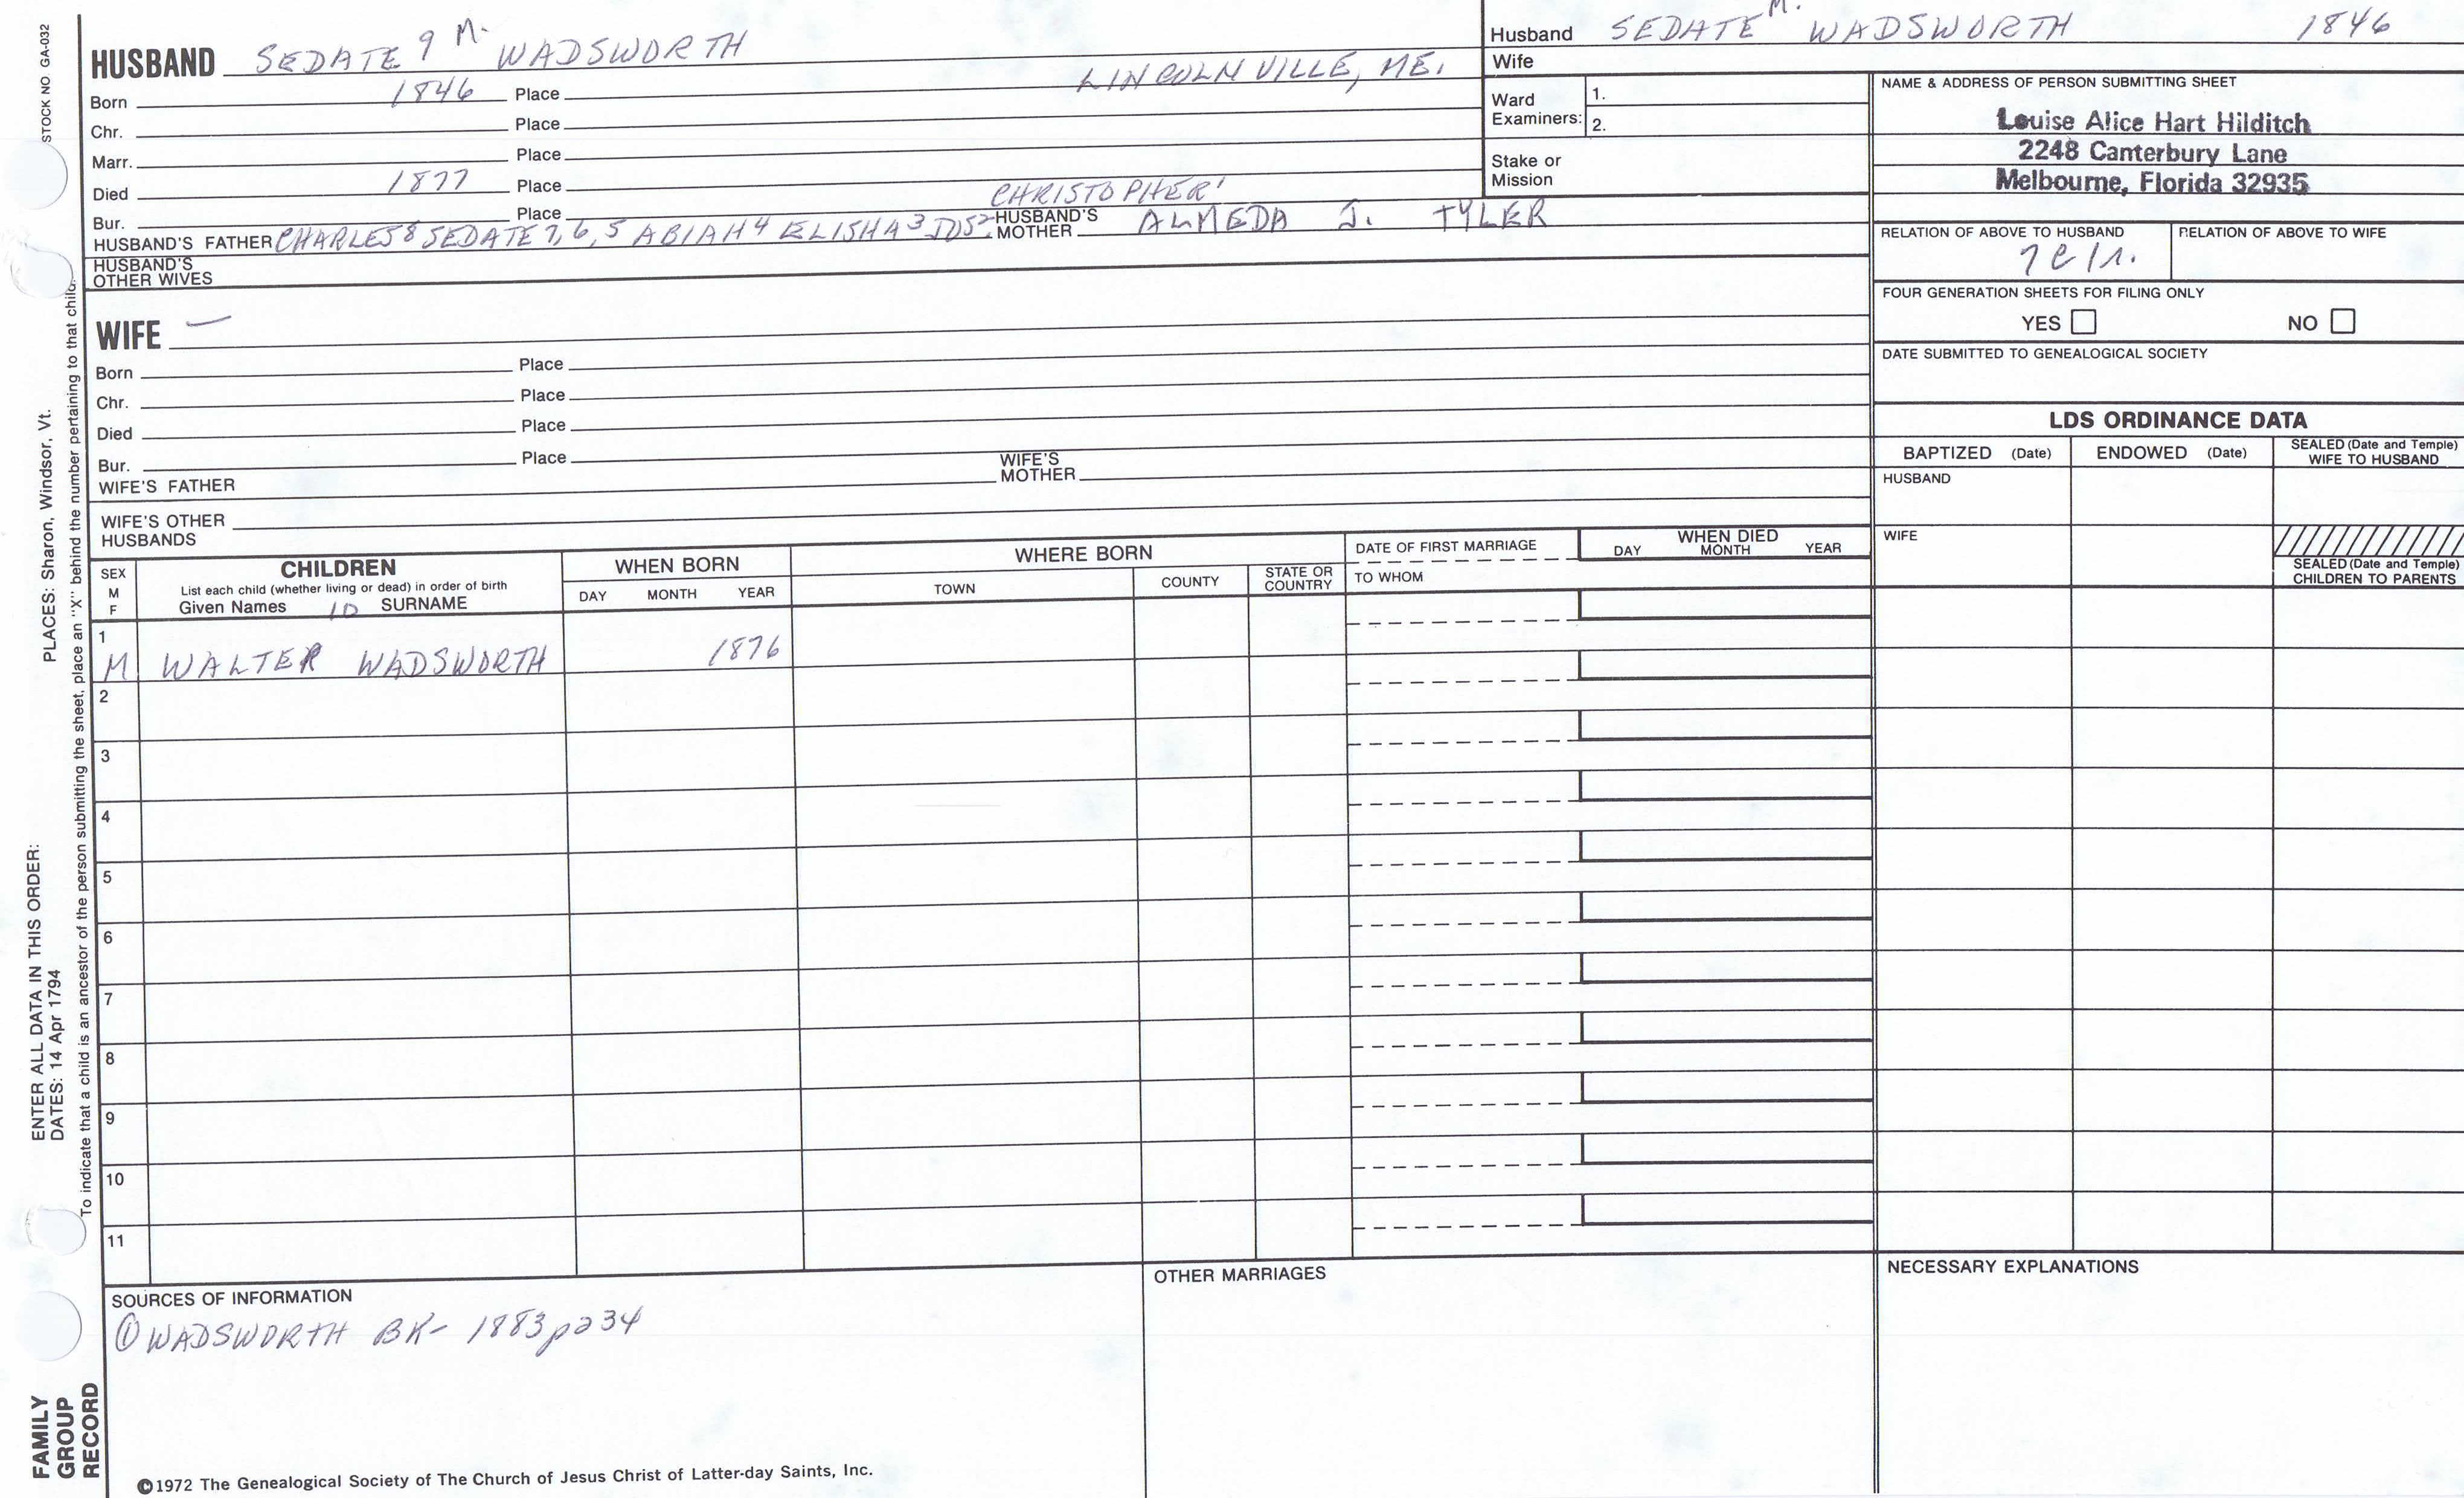 STOCK NO GA-032
PLACES: Sharon, Windsor, Vt.
ENTER ALL DATA IN THIS ORDER:
DATES: 14 Apr 1794
To indicate that a child is an ancestor of the person submitting the sheet, place an "X" behind the number pertaining to that child.
FAMILY
GROUP
RECORD
HUSBAND SEDATE 9 M. WADSWORTH
Born 1846 Place LINCOLNVILLE, ME.
Chr. Place
Marr. Place
Died 1877 Place
Bur. Place
CHRISTOPHER 1
HUSBAND'S FATHER CHARLES 8 SEDATE 7, 6, 5 ABIAH 4 ELISHA 3 JOS 2 HUSBAND'S MOTHER ALMEDA J. TYLER
HUSBAND'S
OTHER WIVES
WIFE —
Born Place
Chr. Place
Died Place
Bur. Place
WIFE'S FATHER WIFE'S MOTHER
WIFE'S OTHER
HUSBANDS
Husband SEDATE M. WADSWORTH 1846
Wife
Ward Examiners: 1.
2.
Stake or
Mission
NAME & ADDRESS OF PERSON SUBMITTING SHEET
Louise Alice Hart Hilditch
2248 Canterbury Lane
Melbourne, Florida 32935
RELATION OF ABOVE TO HUSBAND RELATION OF ABOVE TO WIFE
FOUR GENERATION SHEETS FOR FILING ONLY
YES NO
DATE SUBMITTED TO GENEALOGICAL SOCIETY
LDS ORDINANCE DATA
BAPTIZED (Date) ENDOWED (Date) SEALED (Date and Temple) WIFE TO HUSBAND
HUSBAND
WIFE
SEALED (Date and Temple)
CHILDREN TO PARENTS
SEX
M
F
CHILDREN
List each child (whether living or dead) in order of birth
Given Names 10 SURNAME
WHEN BORN
DAY MONTH YEAR
WHERE BORN
TOWN COUNTY STATE OR COUNTRY
DATE OF FIRST MARRIAGE
TO WHOM
WHEN DIED
DAY MONTH YEAR
1
M WALTER WADSWORTH 1876
2
3
4
5
6
7
8
9
10
11
SOURCES OF INFORMATION
① WADSWORTH BK- 1883 p234
OTHER MARRIAGES
NECESSARY EXPLANATIONS
©1972 The Genealogical Society of The Church of Jesus Christ of Latter-day Saints, Inc.